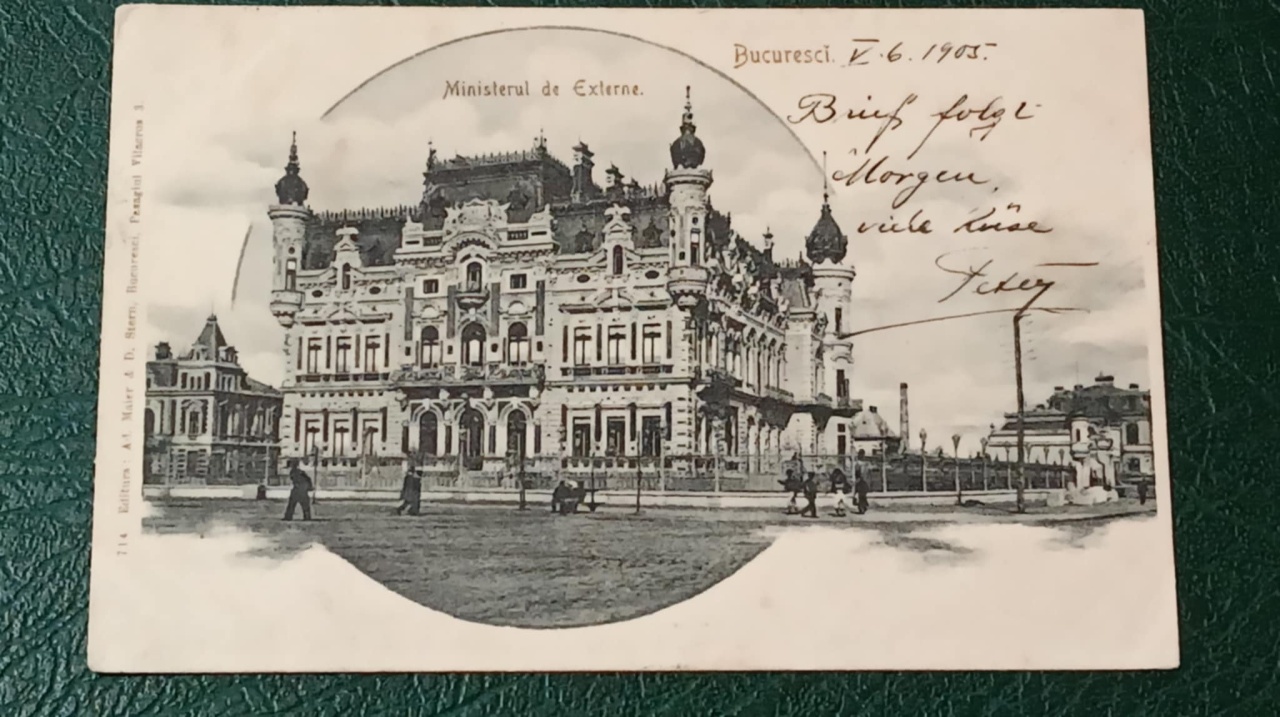 Bucurescĭ. V. 6. 1905.
Ministerul de Externe.
Brief folgt
Morgen,
viele Küsse
Peter
714 Editura: Ad. Maier & D. Stern, Bucuresci, Pasagiul Vilacros 3.